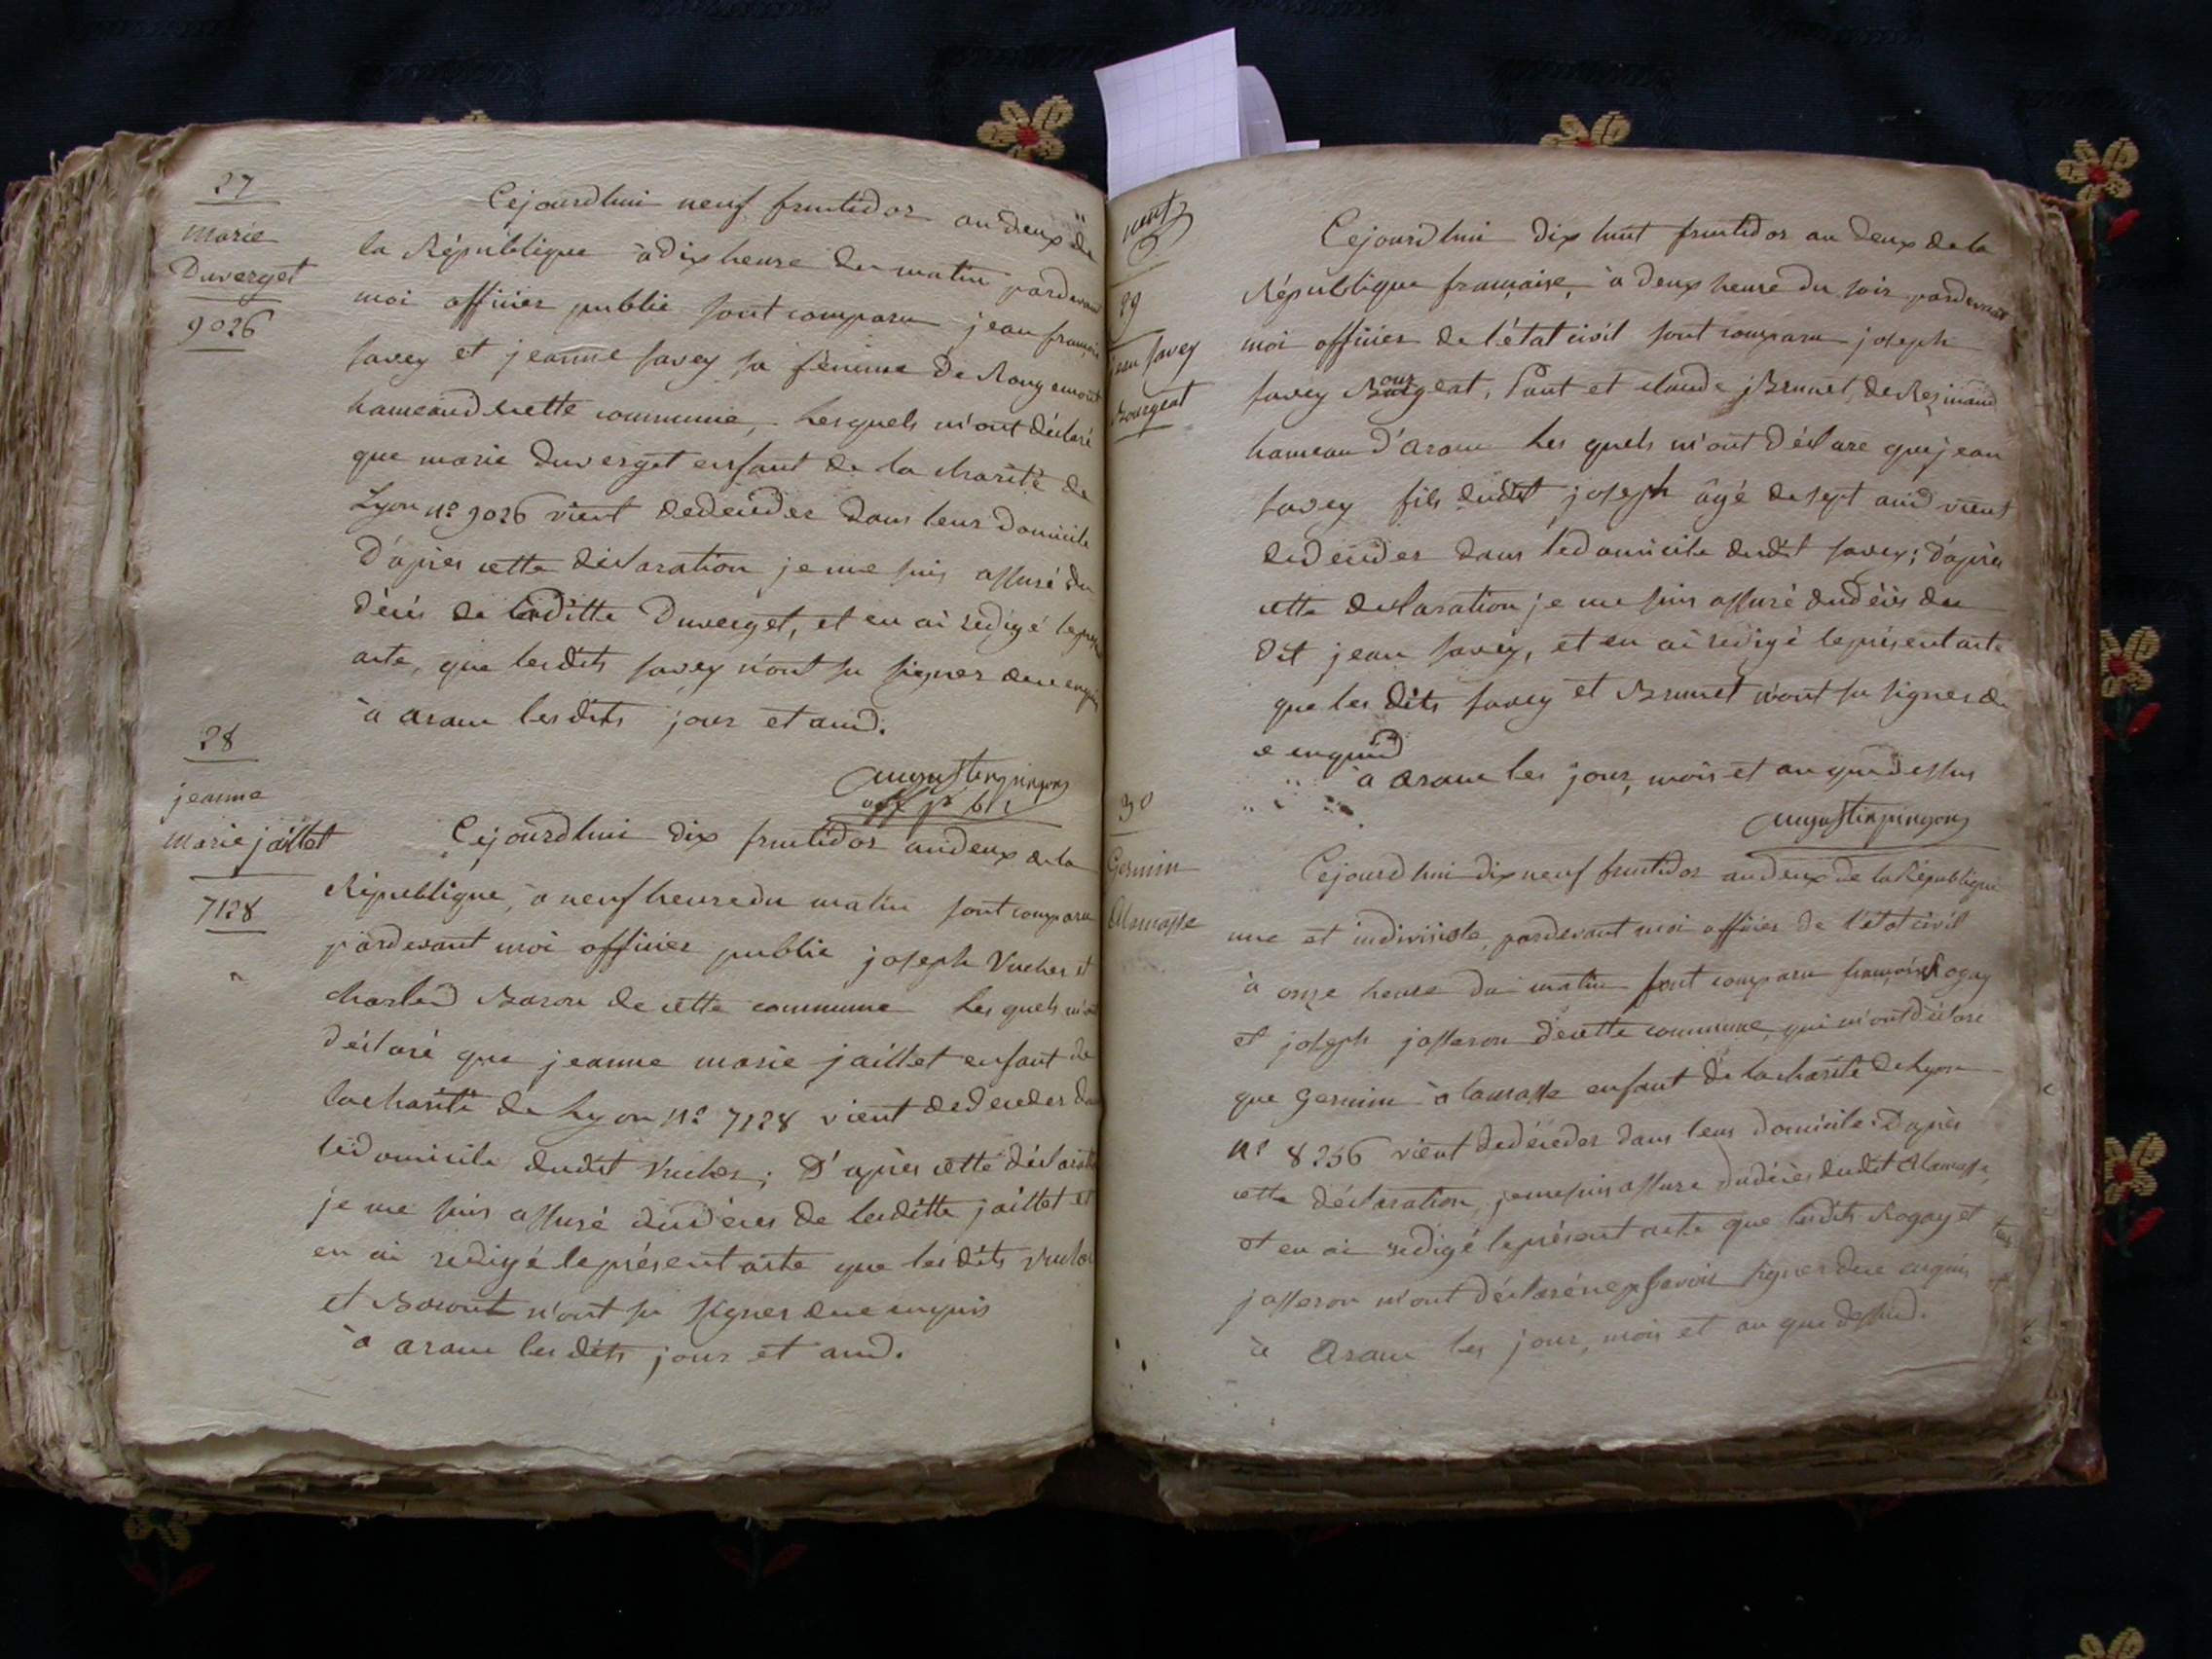 27
marie
Duverget
9026
Cejourdhui neuf fructidor an deux de
la République à dix heure du matin pardevant
moi officier public sont comparu jean francois
savey et jeanne savey sa femme de Rougemont
hameaud cette commune, lesquels m'ont déclaré
que marie duverget enfant de la charité de
Lyon n° 9026 vient dedeceder dans leur domicile
D'après cette déclaration je me suis assuré du
décès de laditte Duverget, et en ai rédigé le
acte, que lesdits savey n'ont su signer de ce enquis
à aranc lesdits jour et and.
augustin pingon
off pbl
28
jeanne
marie jaillet
7128
Cejourdhui dix fructidor an deux de la
République, à neuf heure du matin sont comparu
pardevant moi officier public joseph Vucher et
charled Baron de cette commune lesquels m'ont
déclaré que jeanne marie jaillet enfant de
la charité de Lyon n° 7128 vient dedeceder
le domicile dudit Vucher; D'après cette déclaration
je me suis assuré du décès de laditte jaillet et
en ai rédigé le présent acte que lesdits Vucher
et n'ont su signer de ce enquis
à aranc lesdits jour et and.
29
jean savey
Bourgeat
Cejourdhui dix huit fructidor an deux de la
République française, à deux heure du soir pardevant
moi officier de l'état civil sont comparu joseph
savey Bourgeat, et claude Brunet, de
hameau d'aranc lesquels m'ont déclaré que jean
savey fils dudit joseph âgé de sept and vient
dedeceder dans le domicile dudit savey; d'après
cette declaration je me suis assuré du décès du
dit jean savey, et en ai rédigé le présent acte
que les dits savey et Brunet n'ont su signer de
ce enquid
à aranc les jour, mois et an que dessus
augustin pingon
30
Germin
Alamasse
Cejourdhui dix neuf fructidor an deux de la République
une et indivisible, pardevant moi officier de l'état civil
à onze heure du matin sont comparu françois Rogay
et joseph josseron de cette commune, qui m'ont déclaré
que germin alamasse enfant de la charité de Lyon
n° 8256 vient dedéceder dans leur domicile: D'après
cette déclaration, je me suis assuré du décès dudit Alamasse,
et en ai rédigé le présent acte que lesdits Rogay et
josseron m'ont déclaré ne savoir signer de ce enquis
à Aranc les jour, mois et an que dessud.